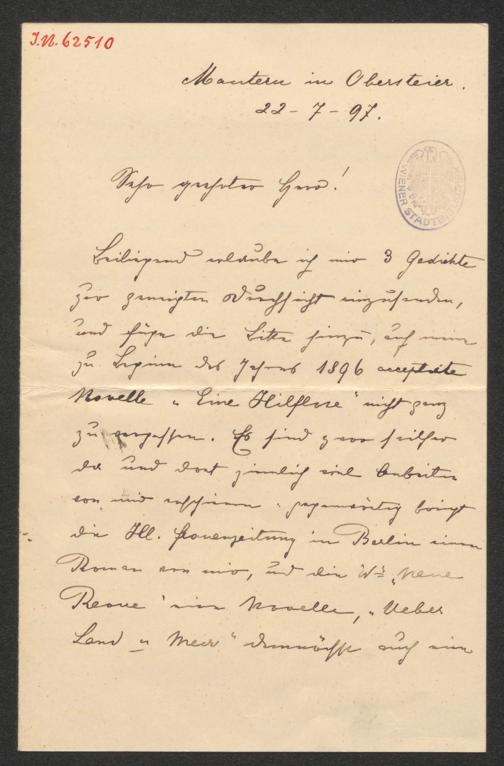 I.N. 62510
Mautern in Obersteier.
22-7-97.
WIENER STADTBIBLIOTHEK
Sehr geehrter Herr!
Beiliegend erlaube ich mir 3 Gedichte
zur geneigten Durchsicht einzusenden,
und füge die Bitte hinzu, auf meine
zu Beginn des Jahres 1896 acceptirte
Novelle „Eine Hilflose" nicht ganz
zu vergessen. Es sind zwar seither
da und dort ziemlich viel Arbeiten
von mir erschienen, gegenwärtig bringt
die Ill. Frauenzeitung in Berlin einen
Roman von mir, und die Wr. „Neue
Revue" eine Novelle, „Ueber
Land u Meer" demnächst auch eine